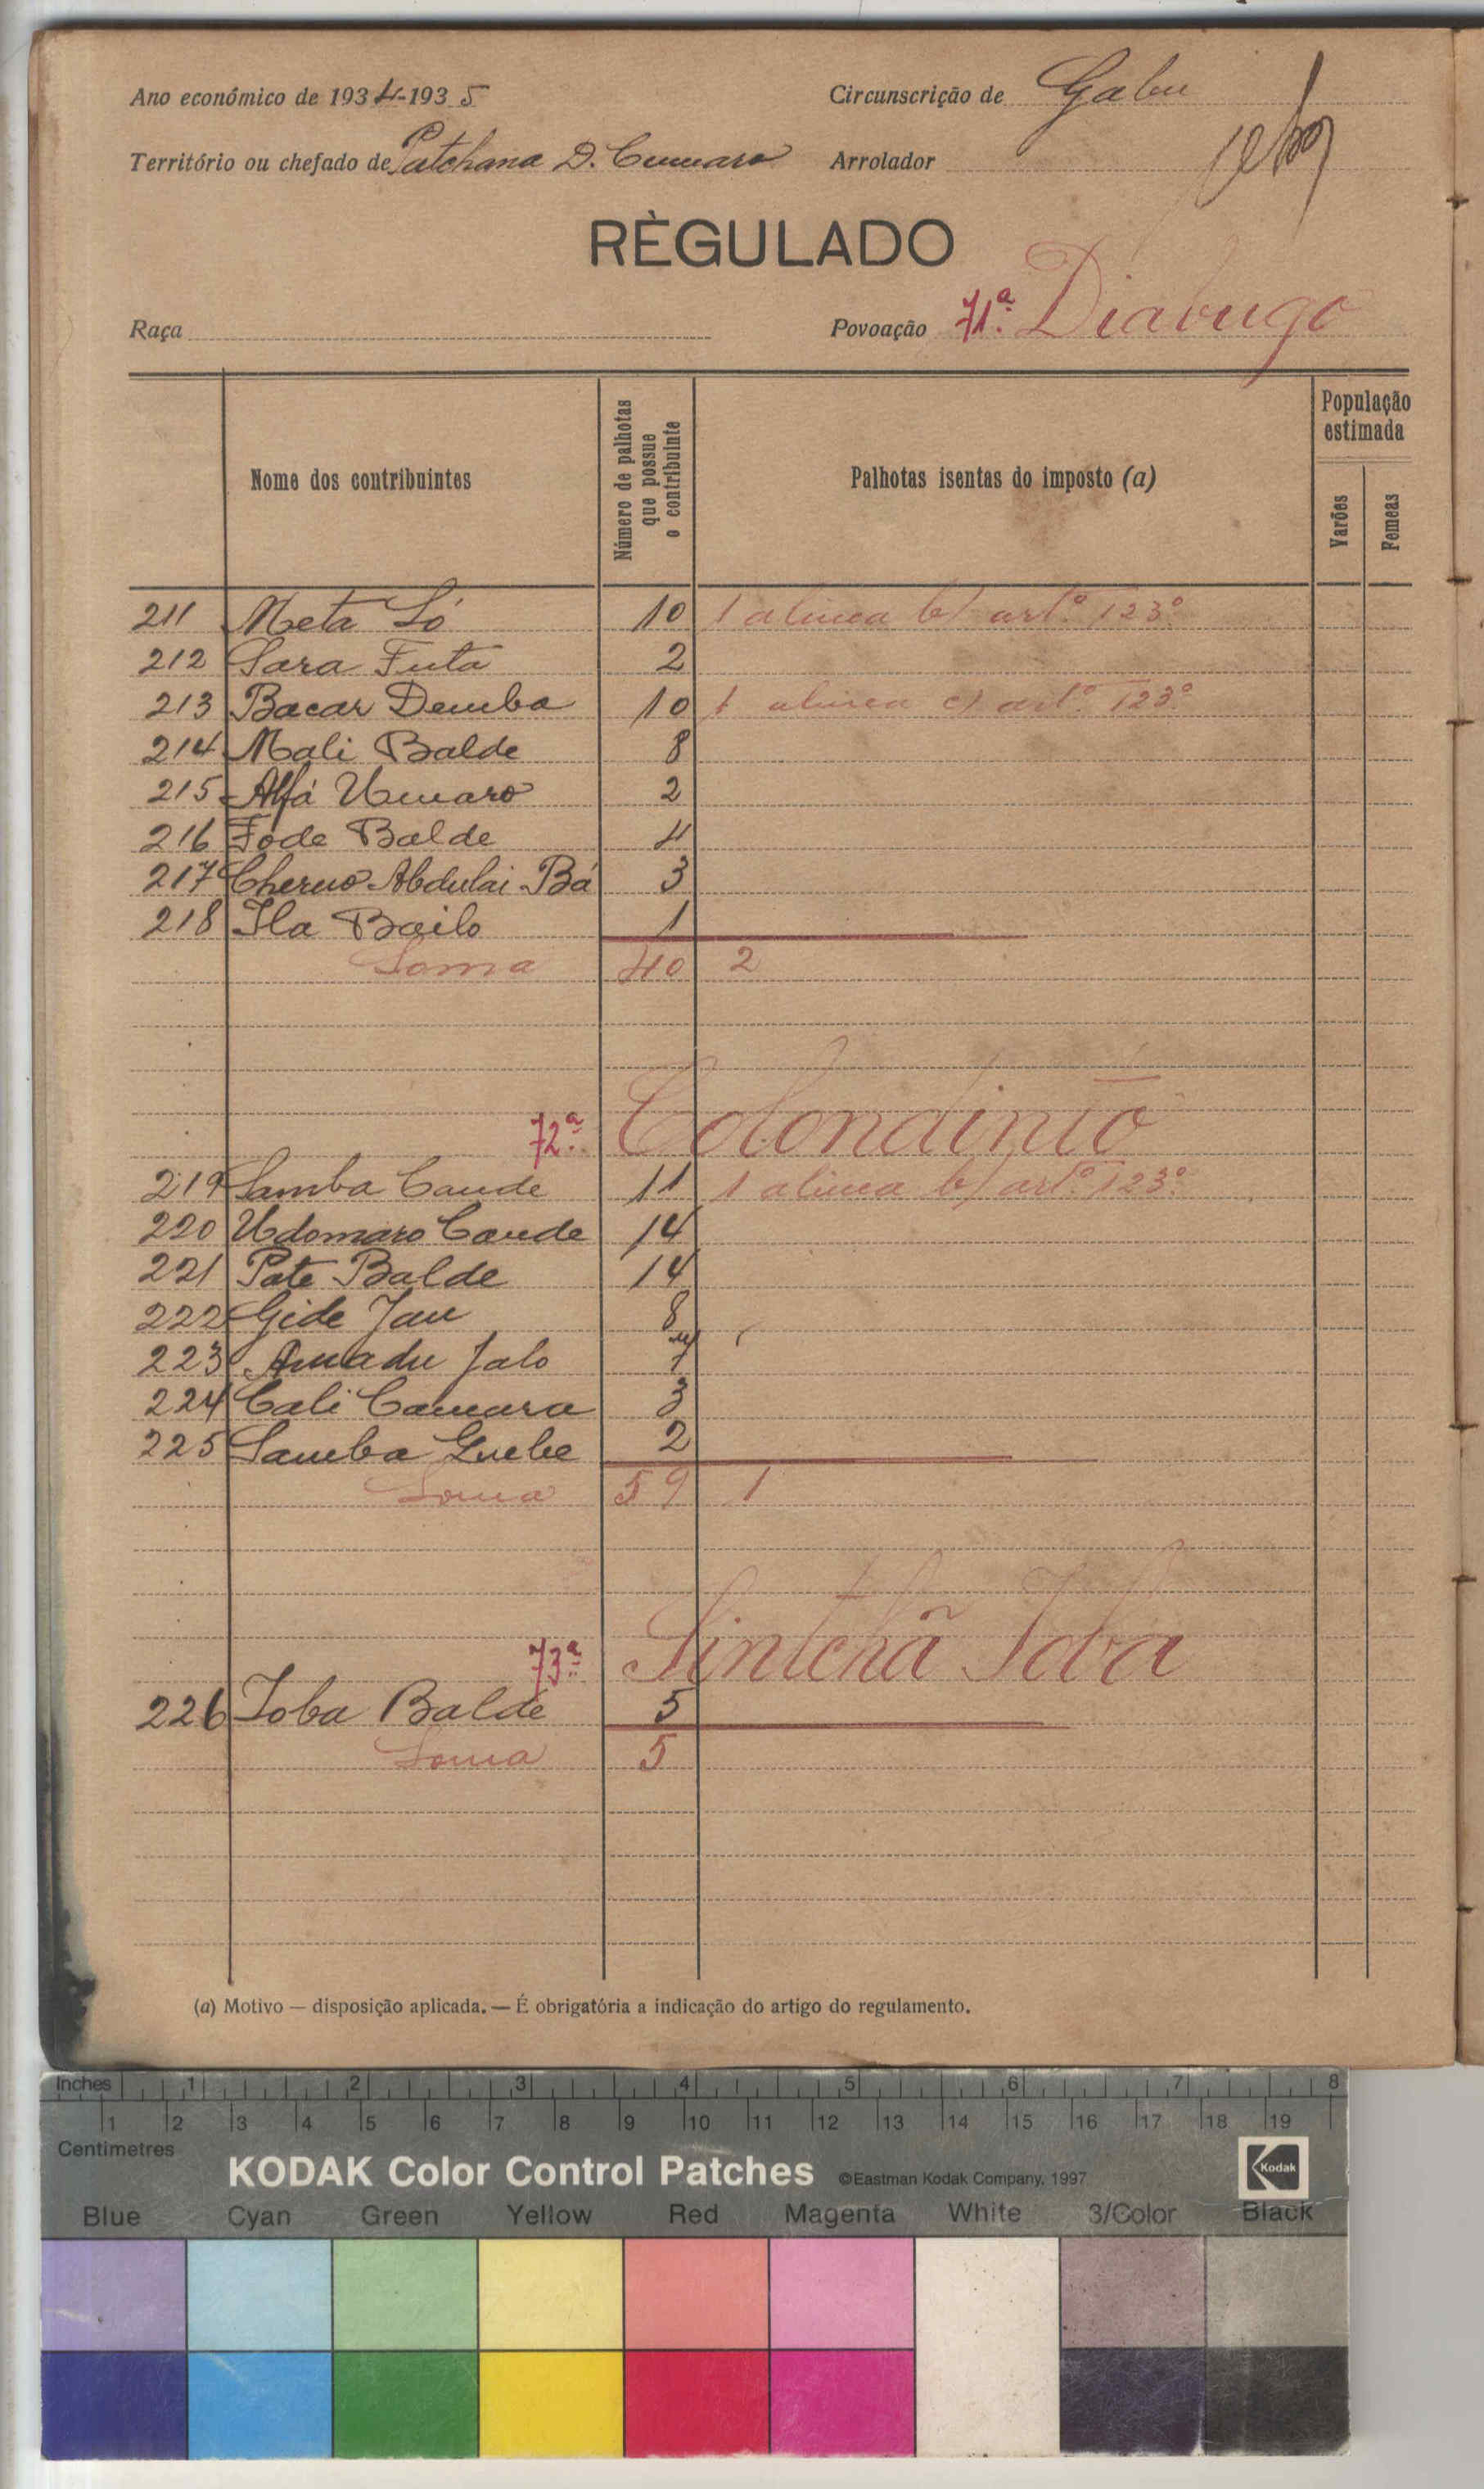 Ano económico de 1934-1935 Circunscrição de Gabu
Território ou chefado de Patchana D. Cumaro Arrolador
RÈGULADO
Raça Povoação 71ª Diabugo
Nome dos contribuintes Número de palhotas que possue o contribuinte Palhotas isentas do imposto (a) População estimada Varões Femeas
211 Meta Só 10 1 alinea b) artº 123º
212 Sara Futa 2
213 Bacar Demba 10 1 alinea c) artº 123º
214 Mali Balde 8
215 Alfá Umaro 2
216 Fode Balde 4
217 Cherno Abdulai Bá 3
218 Ila Bailo 1
Soma 40 2
72ª Colondinto
219 Samba Cande 11 1 alinea b) artº 123º
220 Udomaro Cande 14
221 Pate Balde 14
222 Gide Jau 8
223 Amadu Jalo 7
224 Cali Camara 3
225 Samba Guebe 2
Soma 59 1
73ª Sintchã Ioba
226 Ioba Balde 5
Soma 5
(a) Motivo — disposição aplicada. — É obrigatória a indicação do artigo do regulamento.
Inches 1 2 3 4 5 6 7 8
1 2 3 4 5 6 7 8 9 10 11 12 13 14 15 16 17 18 19
Centimetres
KODAK Color Control Patches ©Eastman Kodak Company, 1997 Kodak
Blue Cyan Green Yellow Red Magenta White 3/Color Black